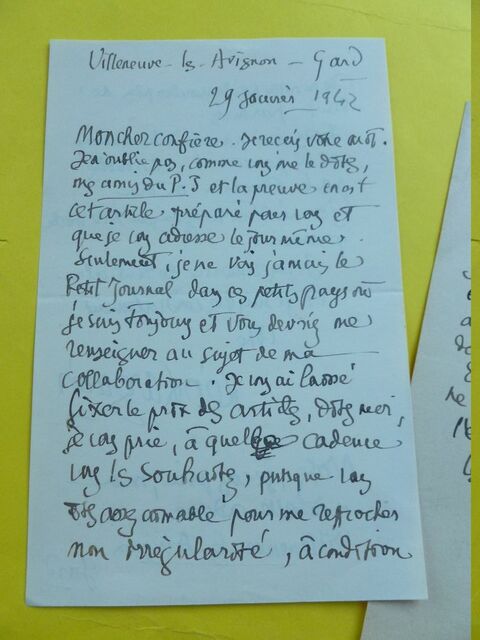 Villeneuve-ls-Avignon - Gard
29 Janvier 1942
Mon cher confrère. Je reçois votre mot.
Je n'oublie pas, comme vous me le dites,
mes amis du P. J et la preuve en est
cet article préparé pour vous et
que je vous adresse le jour même.
Seulement, je ne vois jamais le
Petit Journal dans ces petits pays où
je suis toujours et vous devriez me
renseigner au sujet de ma
collaboration. Je vous ai laissé
fixer le prix des articles, dites moi,
je vous prie, à quelle cadence
vous les souhaitez, puisque vous
êtes assez aimable pour me reprocher
mon irrégularité, à condition